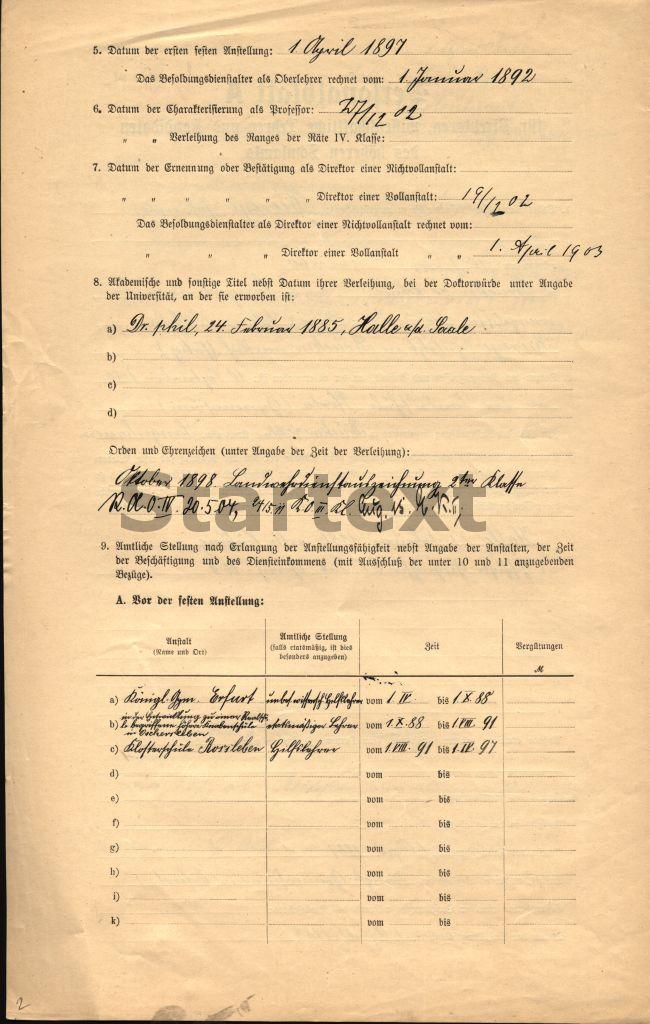 5. Datum der ersten festen Anstellung: 1. April 1897
Das Besoldungsdienstalter als Oberlehrer rechnet vom: 1. Januar 1892
6. Datum der Charakterisierung als Professor: 27/12 02
„ „ Verleihung des Ranges der Räte IV. Klasse:
7. Datum der Ernennung oder Bestätigung als Direktor einer Nichtvollanstalt:
„ „ „ „ „ „ Direktor einer Vollanstalt: 19/12 02
Das Besoldungsdienstalter als Direktor einer Nichtvollanstalt rechnet vom:
„ „ „ Direktor einer Vollanstalt „ „ 1. April 1903
8. Akademische und sonstige Titel nebst Datum ihrer Verleihung, bei der Doktorwürde unter Angabe
der Universität, an der sie erworben ist:
a) Dr. phil, 24. Februar 1885, Halle a/d. Saale
b)
c)
d)
Orden und Ehrenzeichen (unter Angabe der Zeit der Verleihung):
Oktober 1898 Landwehrdienstauszeichnung 2ter Klasse
R.A.O. IV. 20.5.04,
Startext
9. Amtliche Stellung nach Erlangung der Anstellungsfähigkeit nebst Angabe der Anstalten, der Zeit
der Beschäftigung und des Diensteinkommens (mit Ausschluß der unter 10 und 11 anzugebenden
Bezüge).
A. Vor der festen Anstellung:
Anstalt (Name und Ort) Amtliche Stellung (falls etatsmäßig, ist dies besonders anzugeben) Zeit Vergütungen M
a) Königl. Gym. Erfurt wissensch Hilfslehrer vom 1. IV. bis 1. X. 88
in der Entwicklung zu einer
b) begriffene höhere Knabenschule in Oschersleben etatsmäßiger Lehrer vom 1. X. 88 bis 1. VIII. 91
c) Klosterschule Rossleben Hilfslehrer vom 1. VIII. 91 bis 1. IV. 97
d) vom bis
e) vom bis
f) vom bis
g) vom bis
h) vom bis
i) vom bis
k) vom bis
2